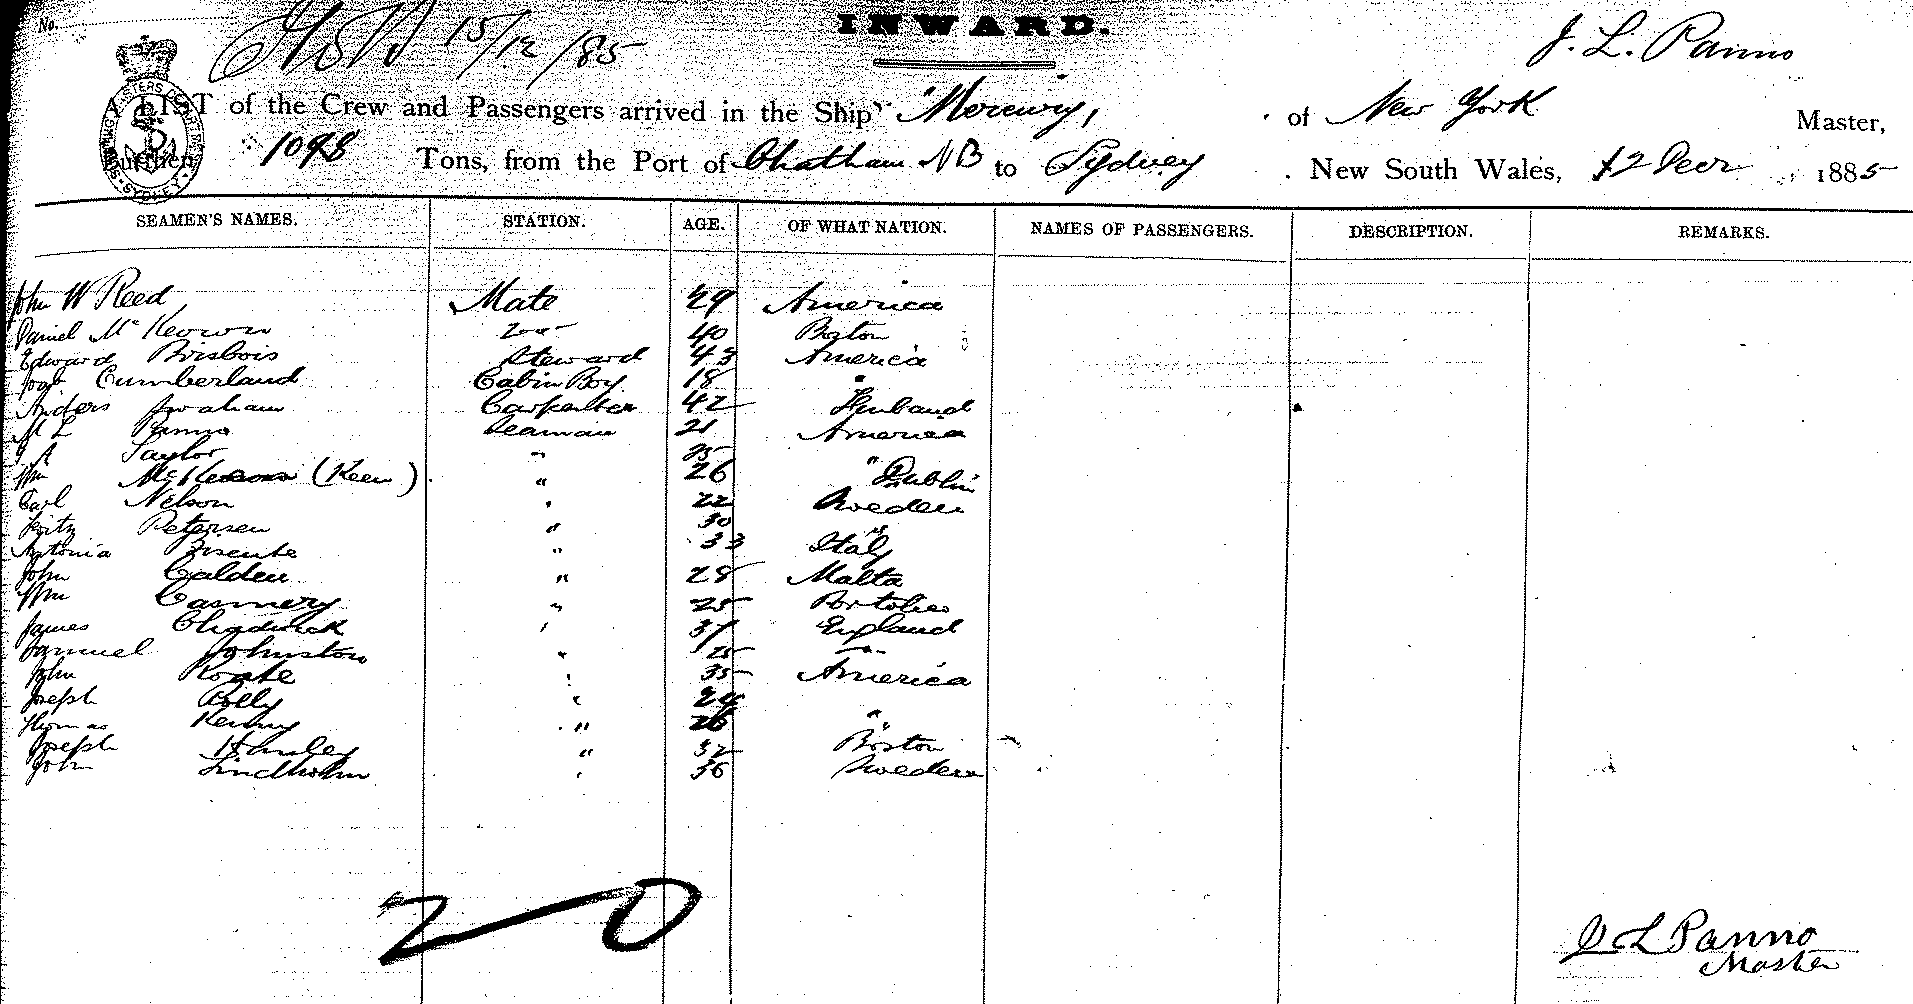 No.
15/12/85
INWARD.
J. L. Panno
A LIST of the Crew and Passengers arrived in the Ship "Mercury, of New York Master,
Burthen 1098 Tons, from the Port of Chatham NB to Sydney New South Wales, 12 Decr 1885
SEAMEN'S NAMES. STATION. AGE. OF WHAT NATION. NAMES OF PASSENGERS. DESCRIPTION. REMARKS.
John W Reed Mate 29 America
Daniel McKeown 2nd 40 Boston
Edward Brisbois Steward 43 America
Cumberland Cabin Boy 18 "
Anders Carpenter 42 Finland
M L Panno Seaman 21 America
Taylor " 25 "
Wm (Keen) " 26 Dublin
Carl Nelson " 22 Sweden
Fritz Petersen " 30 "
Antonia " 33 Italy
John Calden " 28 Malta
Wm Cannery " 25
James Chadwick " 37 England
Samuel Johnston " 25 "
John Roate " 35 America
Joseph Polly " 24 "
Thomas Kenny " 26 "
Joseph " 32 Boston
John Lindholm " 36 Sweden
20
J L Panno
Master